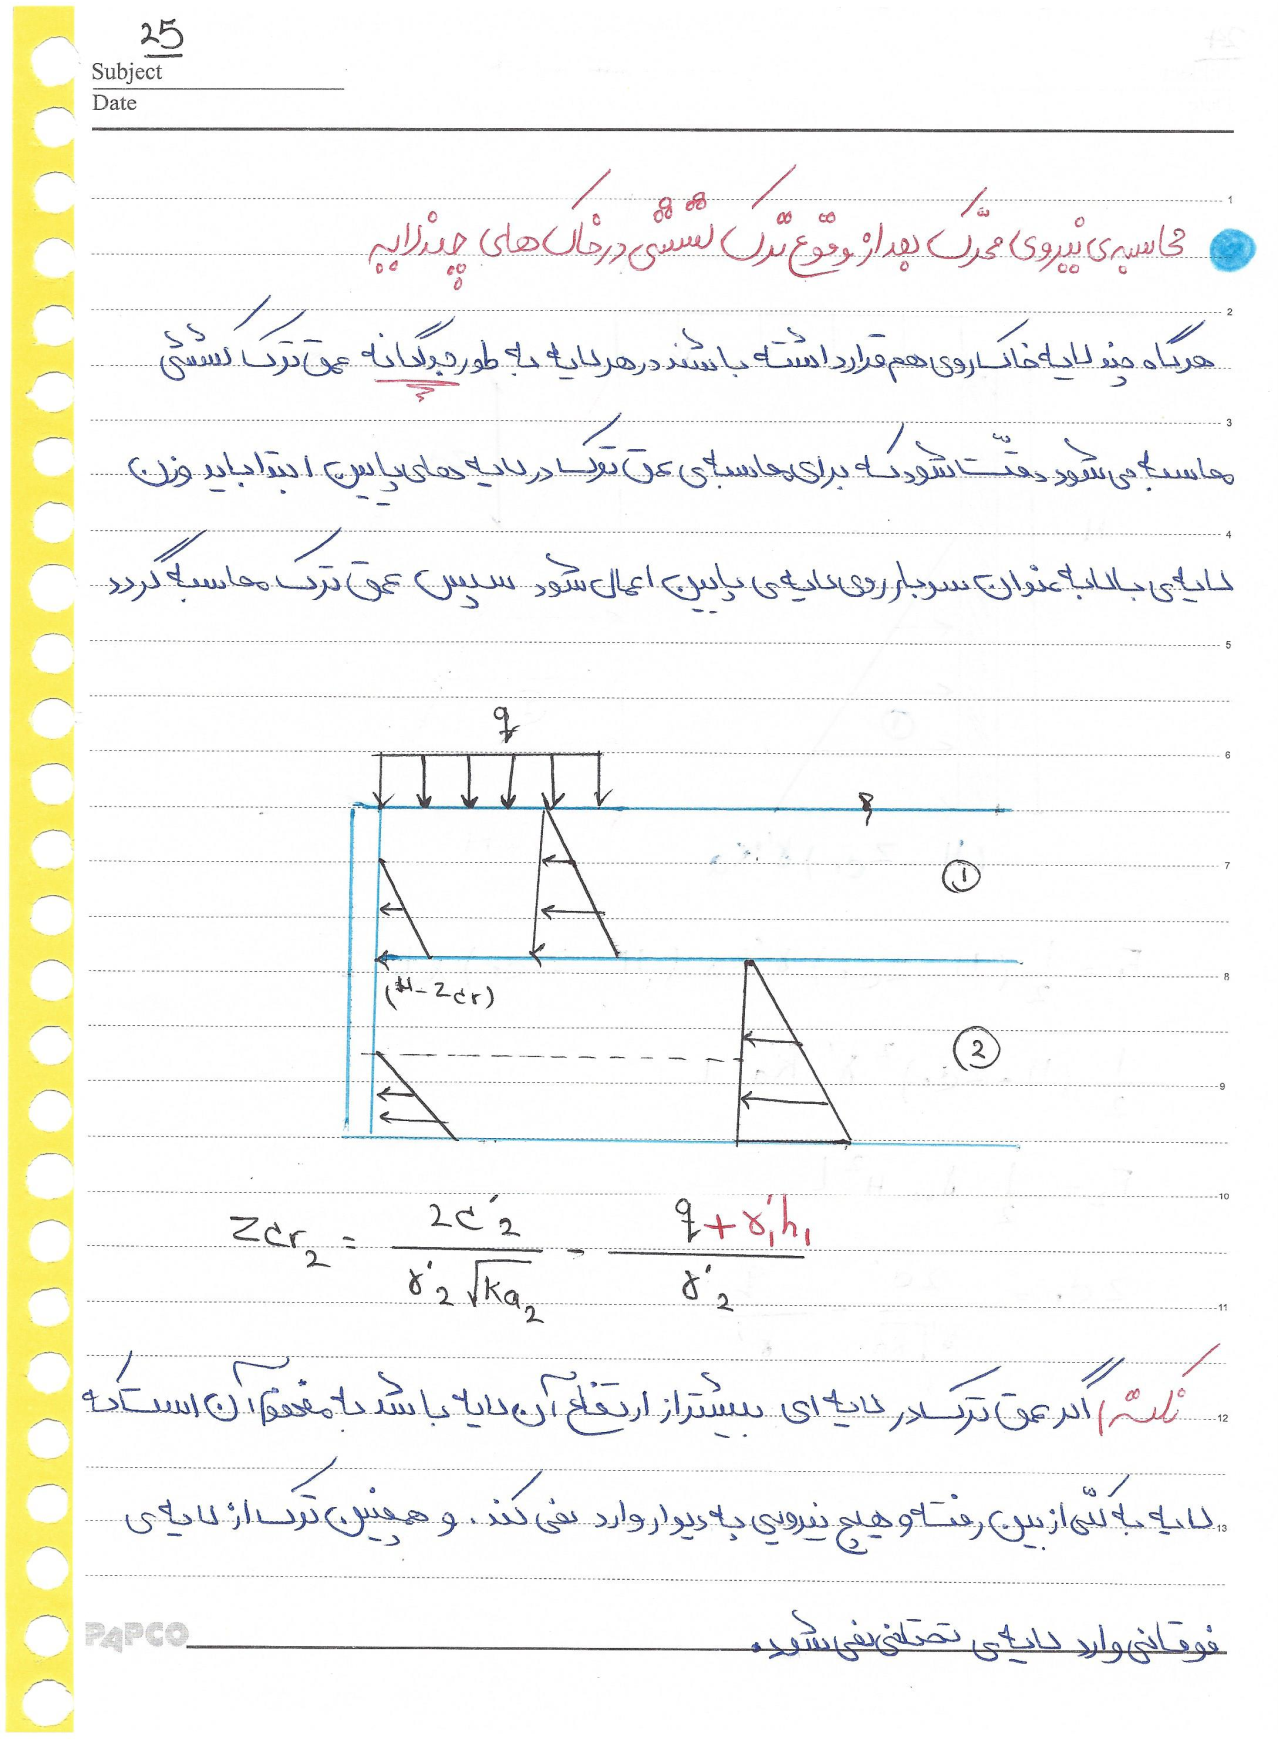 25
Subject
Date
محاسبه‌ی نیروی محرّک بعد از وقوع ترک کششی در خاک های چند لایه
1
2
هرگاه چند لایه خاک روی هم قرار داشته باشند در هر لایه به طور جداگانه عمق ترک کششی
3
محاسبه می‌شود دقّت شود که برای محاسبه‌ی عمق ترک در لایه های پایین ابتدا باید وزن
4
لایه‌ی بالا به عنوان سربار روی لایه‌ی پایین اعمال شود سپس عمق ترک محاسبه گردد
5
q
6
7
1
8
(H-Zcr)
2
9
10
Zcr2 = 2c'2 / γ'2 √ka2 - q + γ'1h1 / γ'2
11
نکته) اگر عمق ترک در لایه ای بیشتر از ارتفاع آن لایه باشد به مفهوم آن است که
12
لایه به کلّی از بین رفته و هیچ نیرویی به دیوار وارد نمی کند. و همچنین ترک از لایه‌ی
13
فوقانی وارد لایه‌ی تحتانی نمی شود.
PAPCO